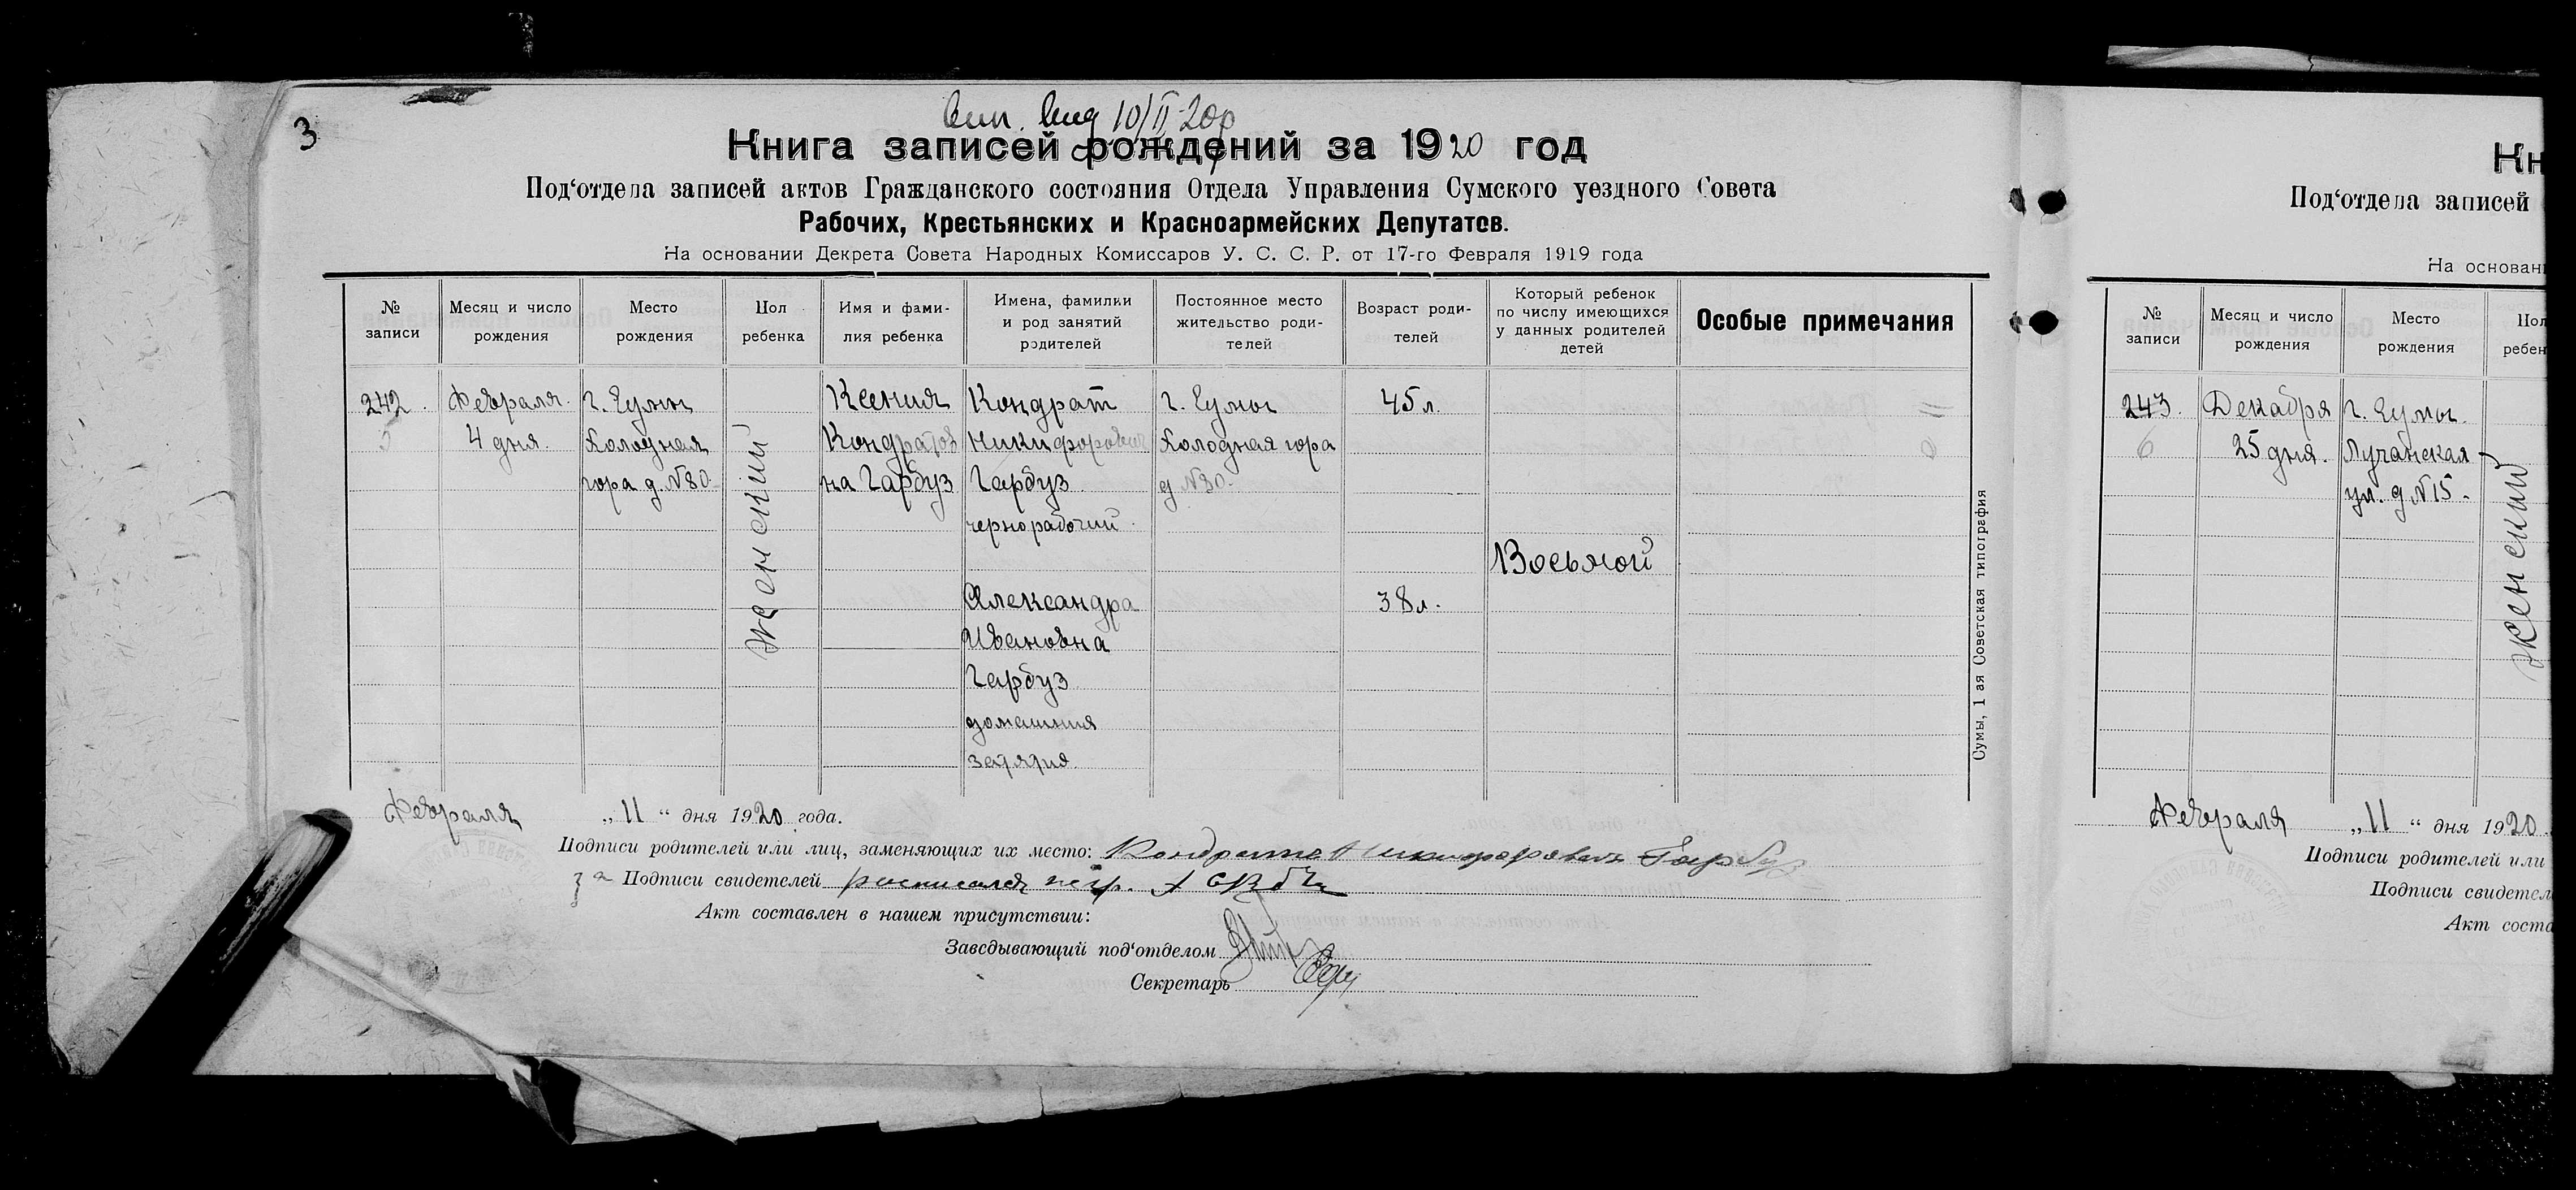 3
10/II 20
Книга записей рождений за 1920 год
Под‘отдела записей актов Гражданского состояния Отдела Управления Сумского уездного Совета
Рабочих, Крестьянских и Красноармейских Депутатов.
На основании Декрета Совета Народных Комиссаров У. С. С. Р. от 17-го Февраля 1919 года
№ записи
Месяц и число рождения
Место рождения
Пол ребенка
Имя и фами-
лия ребенка
Имена, фамилии
и род занятий
родителей
Постоянное место
жительство роди-
телей
Возраст роди-
телей
Который ребенок
по числу имеющихся
у данных родителей
детей
Особые примечания
242.
Февраля
4 дня.
г. Сумы
Холодная
гора д. №80
женский
Ксения
Кондратов
на Гарбуз
Кондрат
Никифорович
Гарбуз
чернорабочий.
Александра
Ивановна
Гарбуз
домашния
занятия
г. Сумы
Холодная гора
д №30.
45 л.
38 л.
Восьмой
Сумы, 1 ая Советская типография
Февраля „11“ дня 1920 года.
Подписи родителей или лиц, заменяющих их место: Кондрат Никифорович Гарбуз
за Подписи свидетелей росписался негр.
Акт составлен в нашем присутствии:
Заведывающий под‘отделом
Секретарь
Кн
Под‘отдела записей
На основан
№ записи
Месяц и число рождения
Место рождения
Пол
ребен
243.
6
Декабря
25 дня.
г. Сумы.
Лучанская
ул. д №15.
женский
Февраля „11“ дня 1920
Подписи родителей или
Подписи свидетел
Акт соста